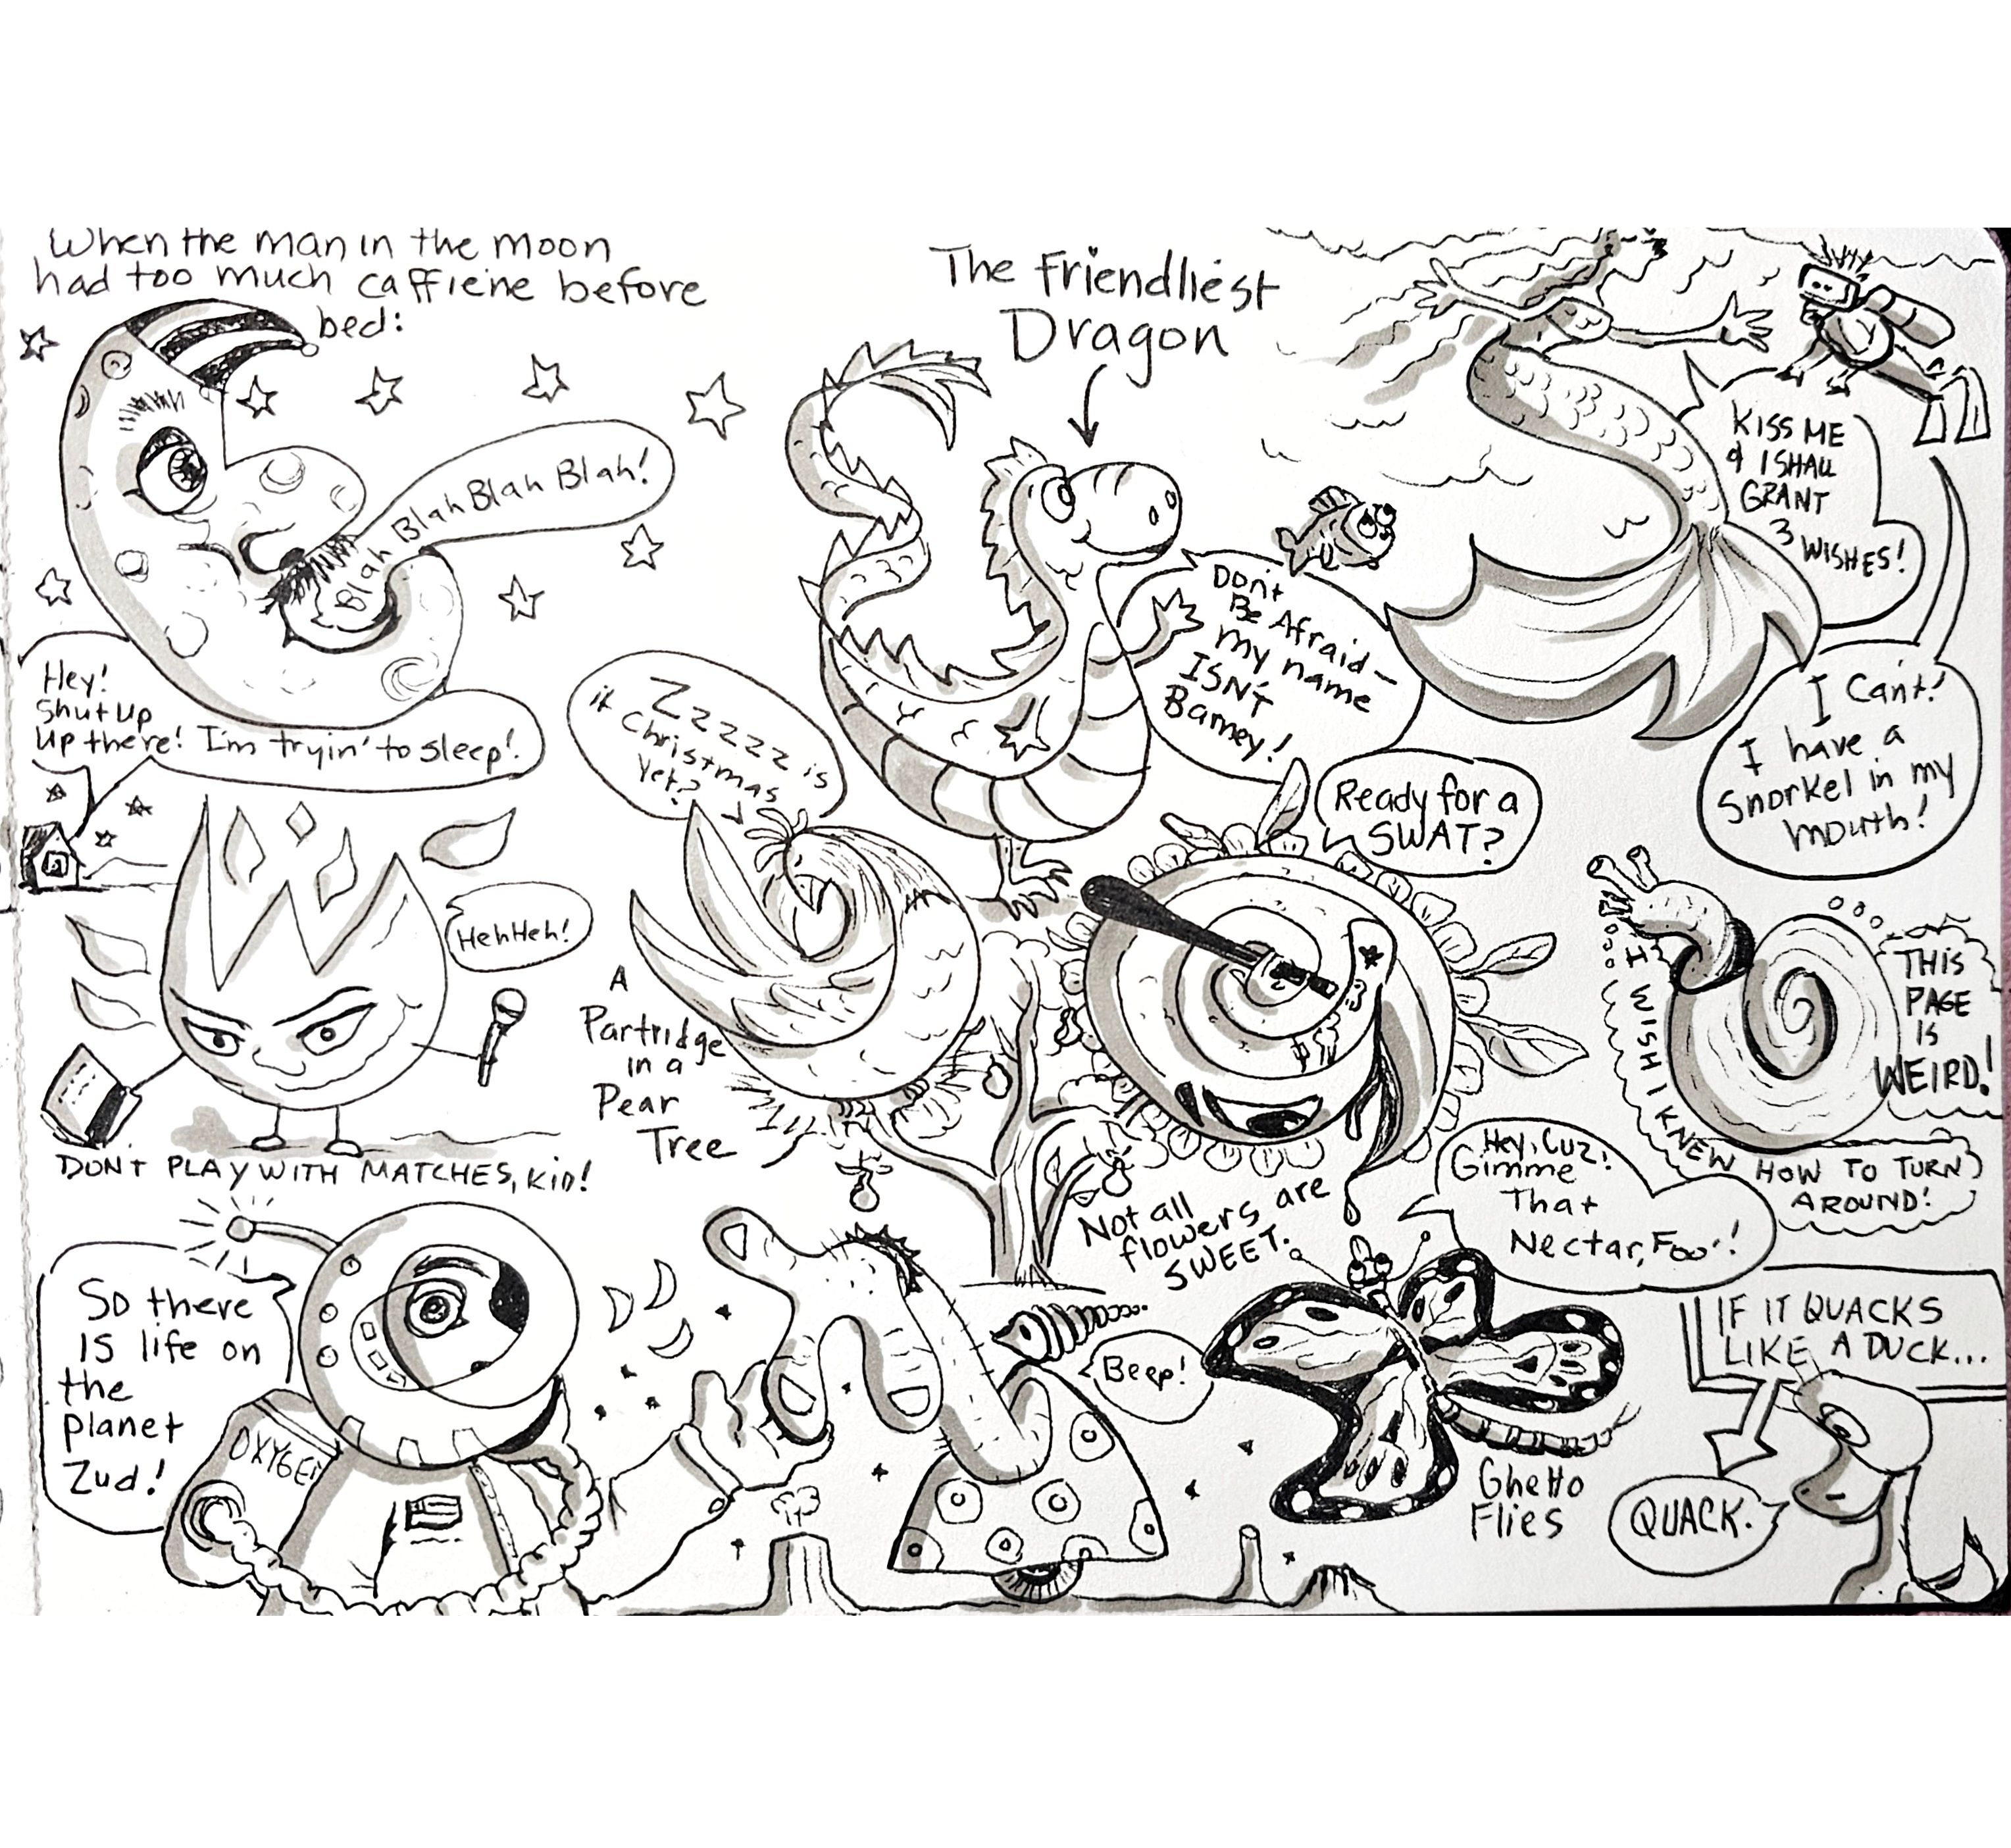 When the man in the moon
had too much caffiene before
bed:
Blah Blah Blah Blah Blah!
Hey!
Shut up
up there! I'm tryin' to sleep!
The Friendliest
Dragon
Don't
Be Afraid—
my name
ISN'T
Barney!
KISS ME
& I SHALL
GRANT
3
WISHES!
I Can't!
I have a
Snorkel in my
mouth!
Zzzzz is
it Christmas
Yet?
Heh Heh!
DON'T PLAY WITH MATCHES, KID!
A
Partridge
in a
Pear
Tree
Ready for a
SWAT?
Not all
flowers are
SWEET.
THIS
PAGE
IS
WEIRD!
I WISH I KNEW HOW TO TURN
AROUND!
So there
IS life on
the
planet
Zud!
OXYGEN
Beep!
Hey, Cuz!
Gimme
That
Nectar, Foo'!
Ghetto
Flies
IF IT QUACKS
LIKE A DUCK...
QUACK.